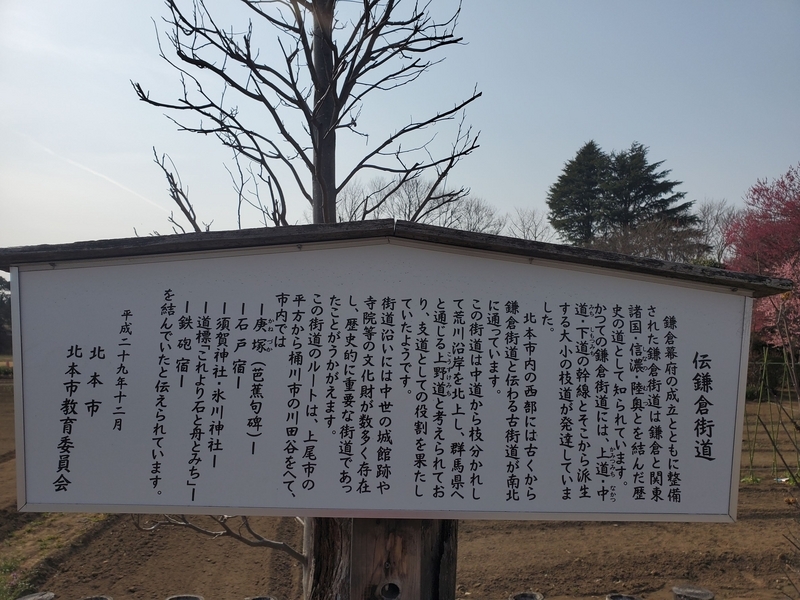 伝鎌倉街道
鎌倉幕府の成立とともに整備
された鎌倉街道は鎌倉と関東
諸国・信濃・陸奥とを結んだ歴
史の道として知られています。
かつての鎌倉街道には、上道・中
道・下道の幹線とそこから派生
する大小の枝道が発達していま
した。
北本市内の西部には古くから
鎌倉街道と伝わる古街道が南北
に通っています。
この街道は中道から枝分かれし
て荒川沿岸を北上し、群馬県へ
と通じる上野道と考えられてお
り、支道としての役割を果たし
ていたようです。
街道沿いには中世の城館跡や
寺院等の文化財が数多く存在
し、歴史的に重要な街道であっ
たことがうかがえます。
この街道のルートは、上尾市の
平方から桶川市の川田谷をへて、
市内では
ー庚塚（芭蕉句碑）ー
ー石戸宿ー
ー須賀神社・氷川神社ー
ー道標「これより石と舟とみち」ー
ー鉄砲宿ー
を結んでいたと伝えられています。
平成二十九年十二月
北本市
北本市教育委員会